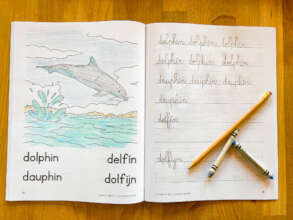 dolphin
delfín
dauphin
dolfijn
dolphin dolphin dolphin
dolphin dolphin dolphin
dauphin dauphin dauphin
dauphin
delfín
dolfijn